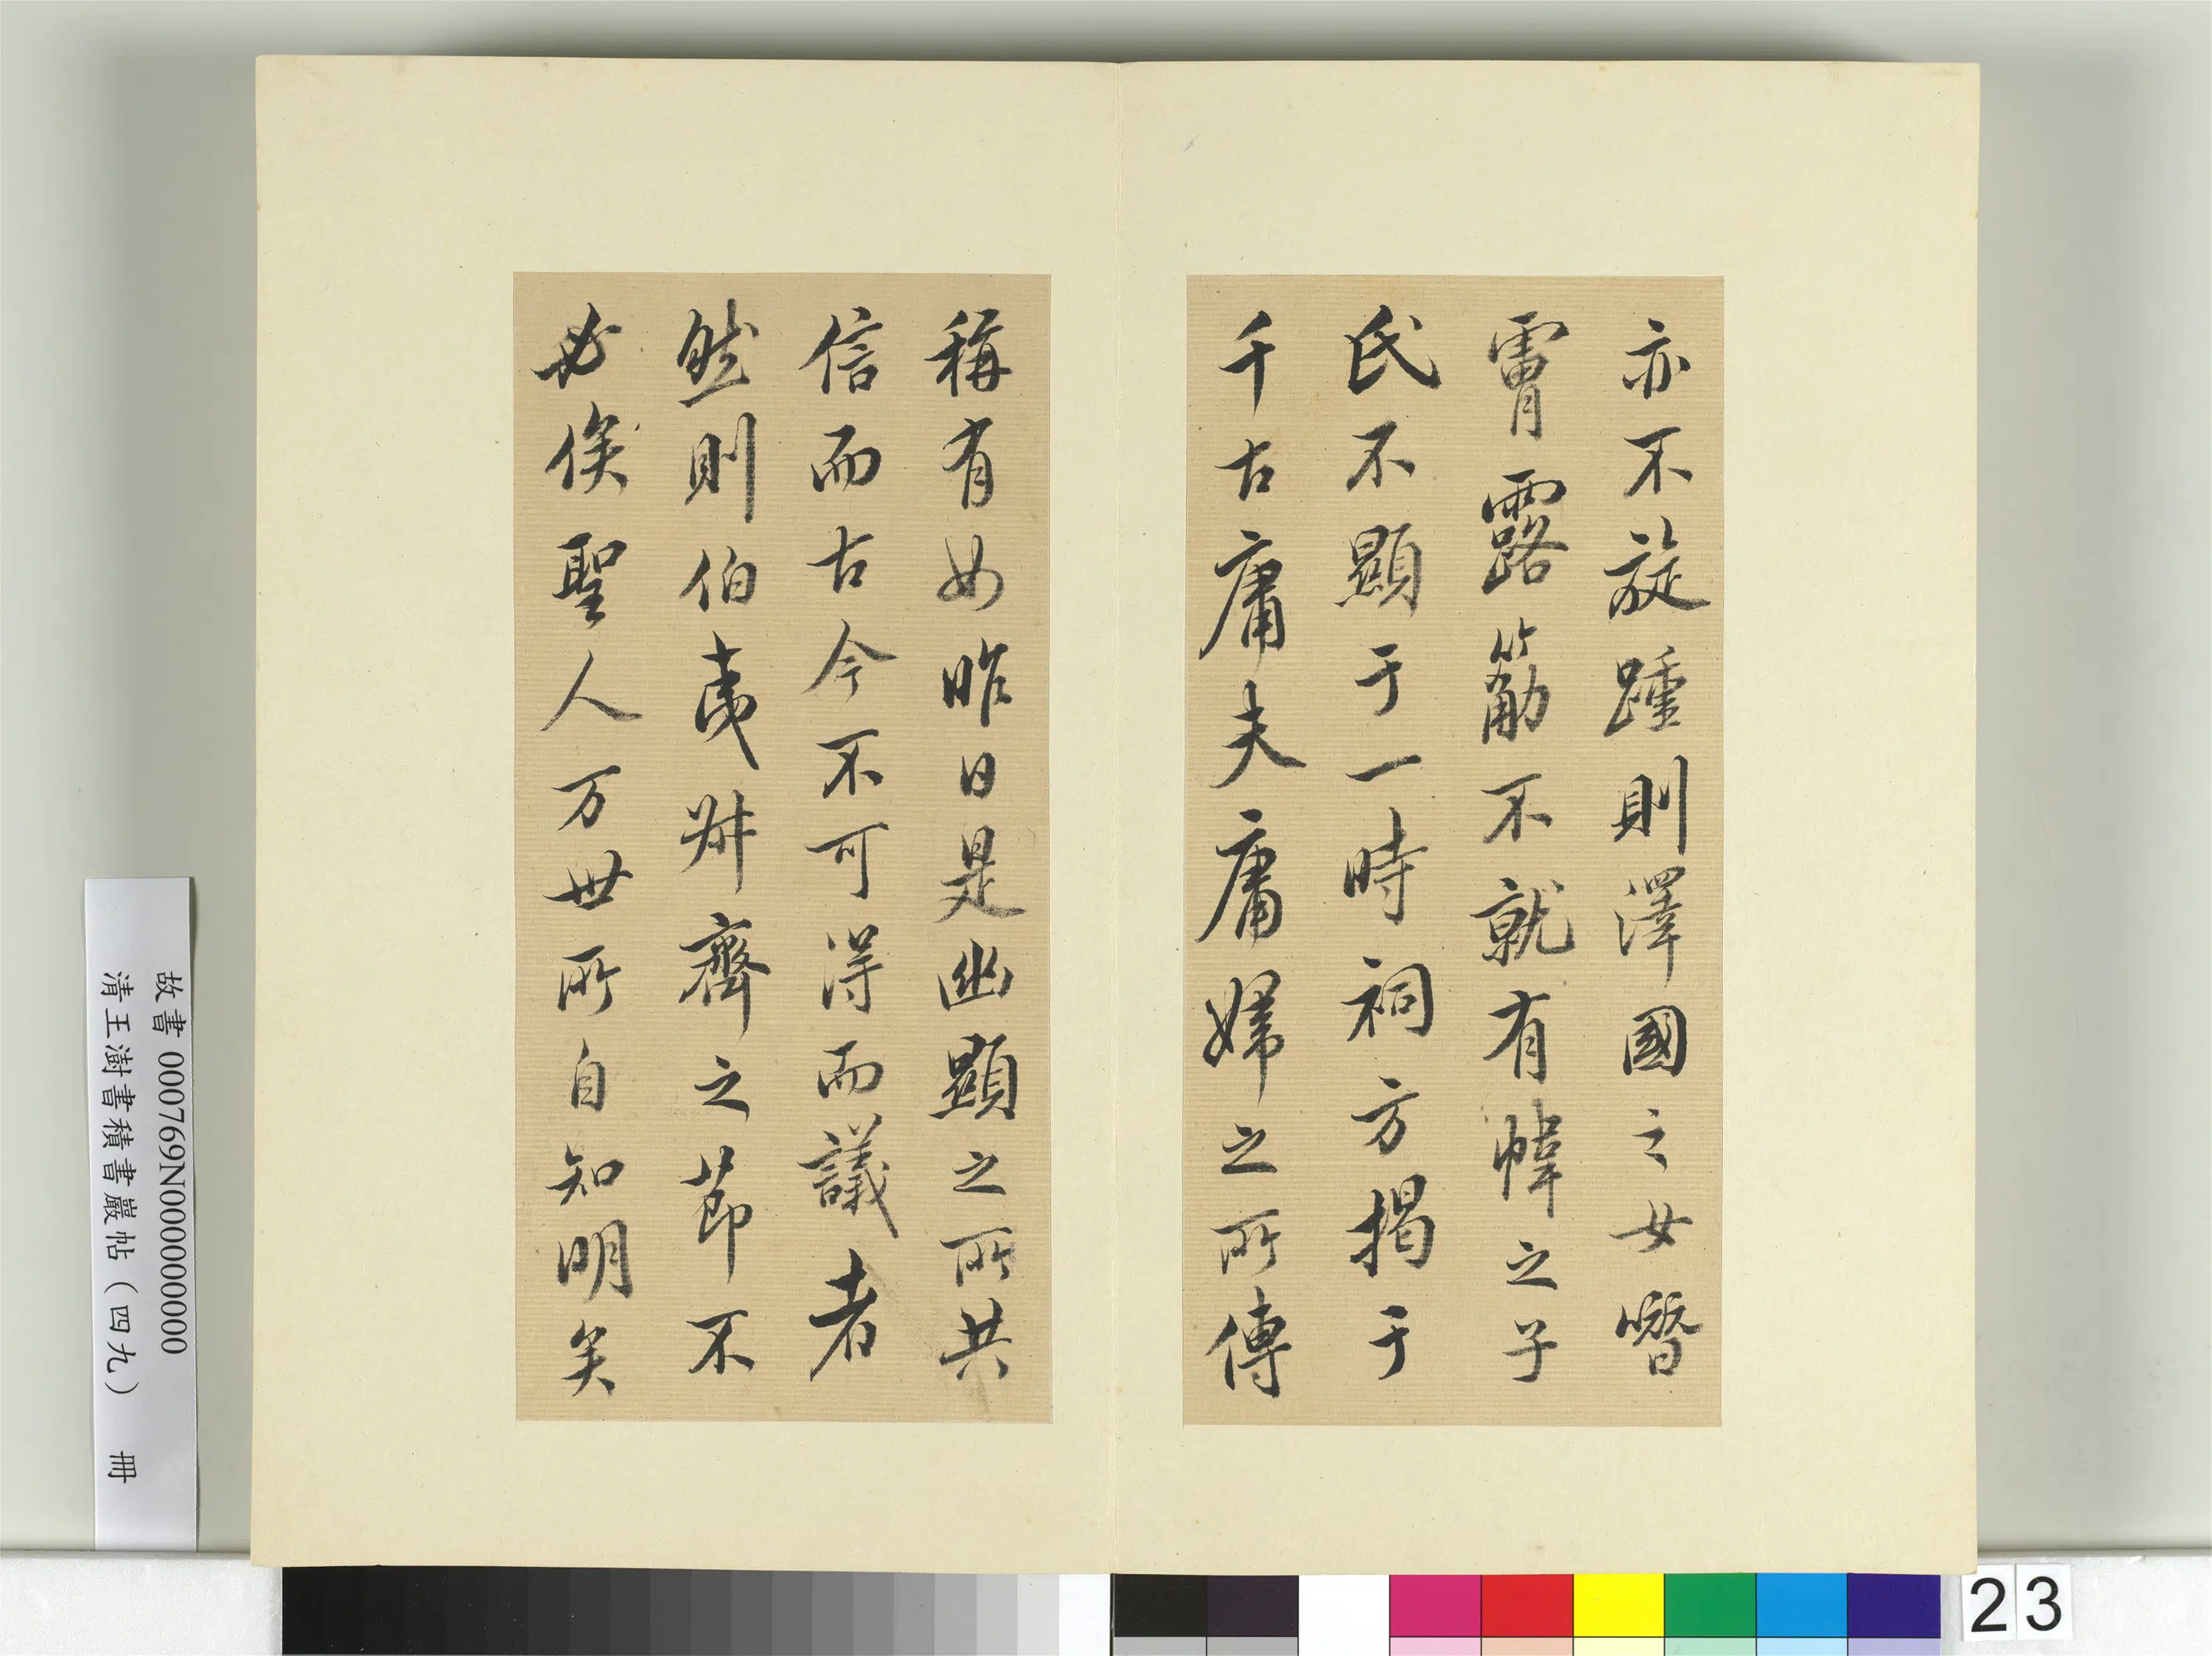 亦不旋踵則澤國之女暬
霄露筋不就有幃之子
氏不顯于一時祠方揭于
千古庸夫庸婦之所傳
稱有如昨日是幽顯之所共
信而古今不可得而議者
然則伯夷叔齊之節不
必俟聖人万世所自知明矣
故書 000769N000000000
清王澍書積書巖帖(四九) 冊
23